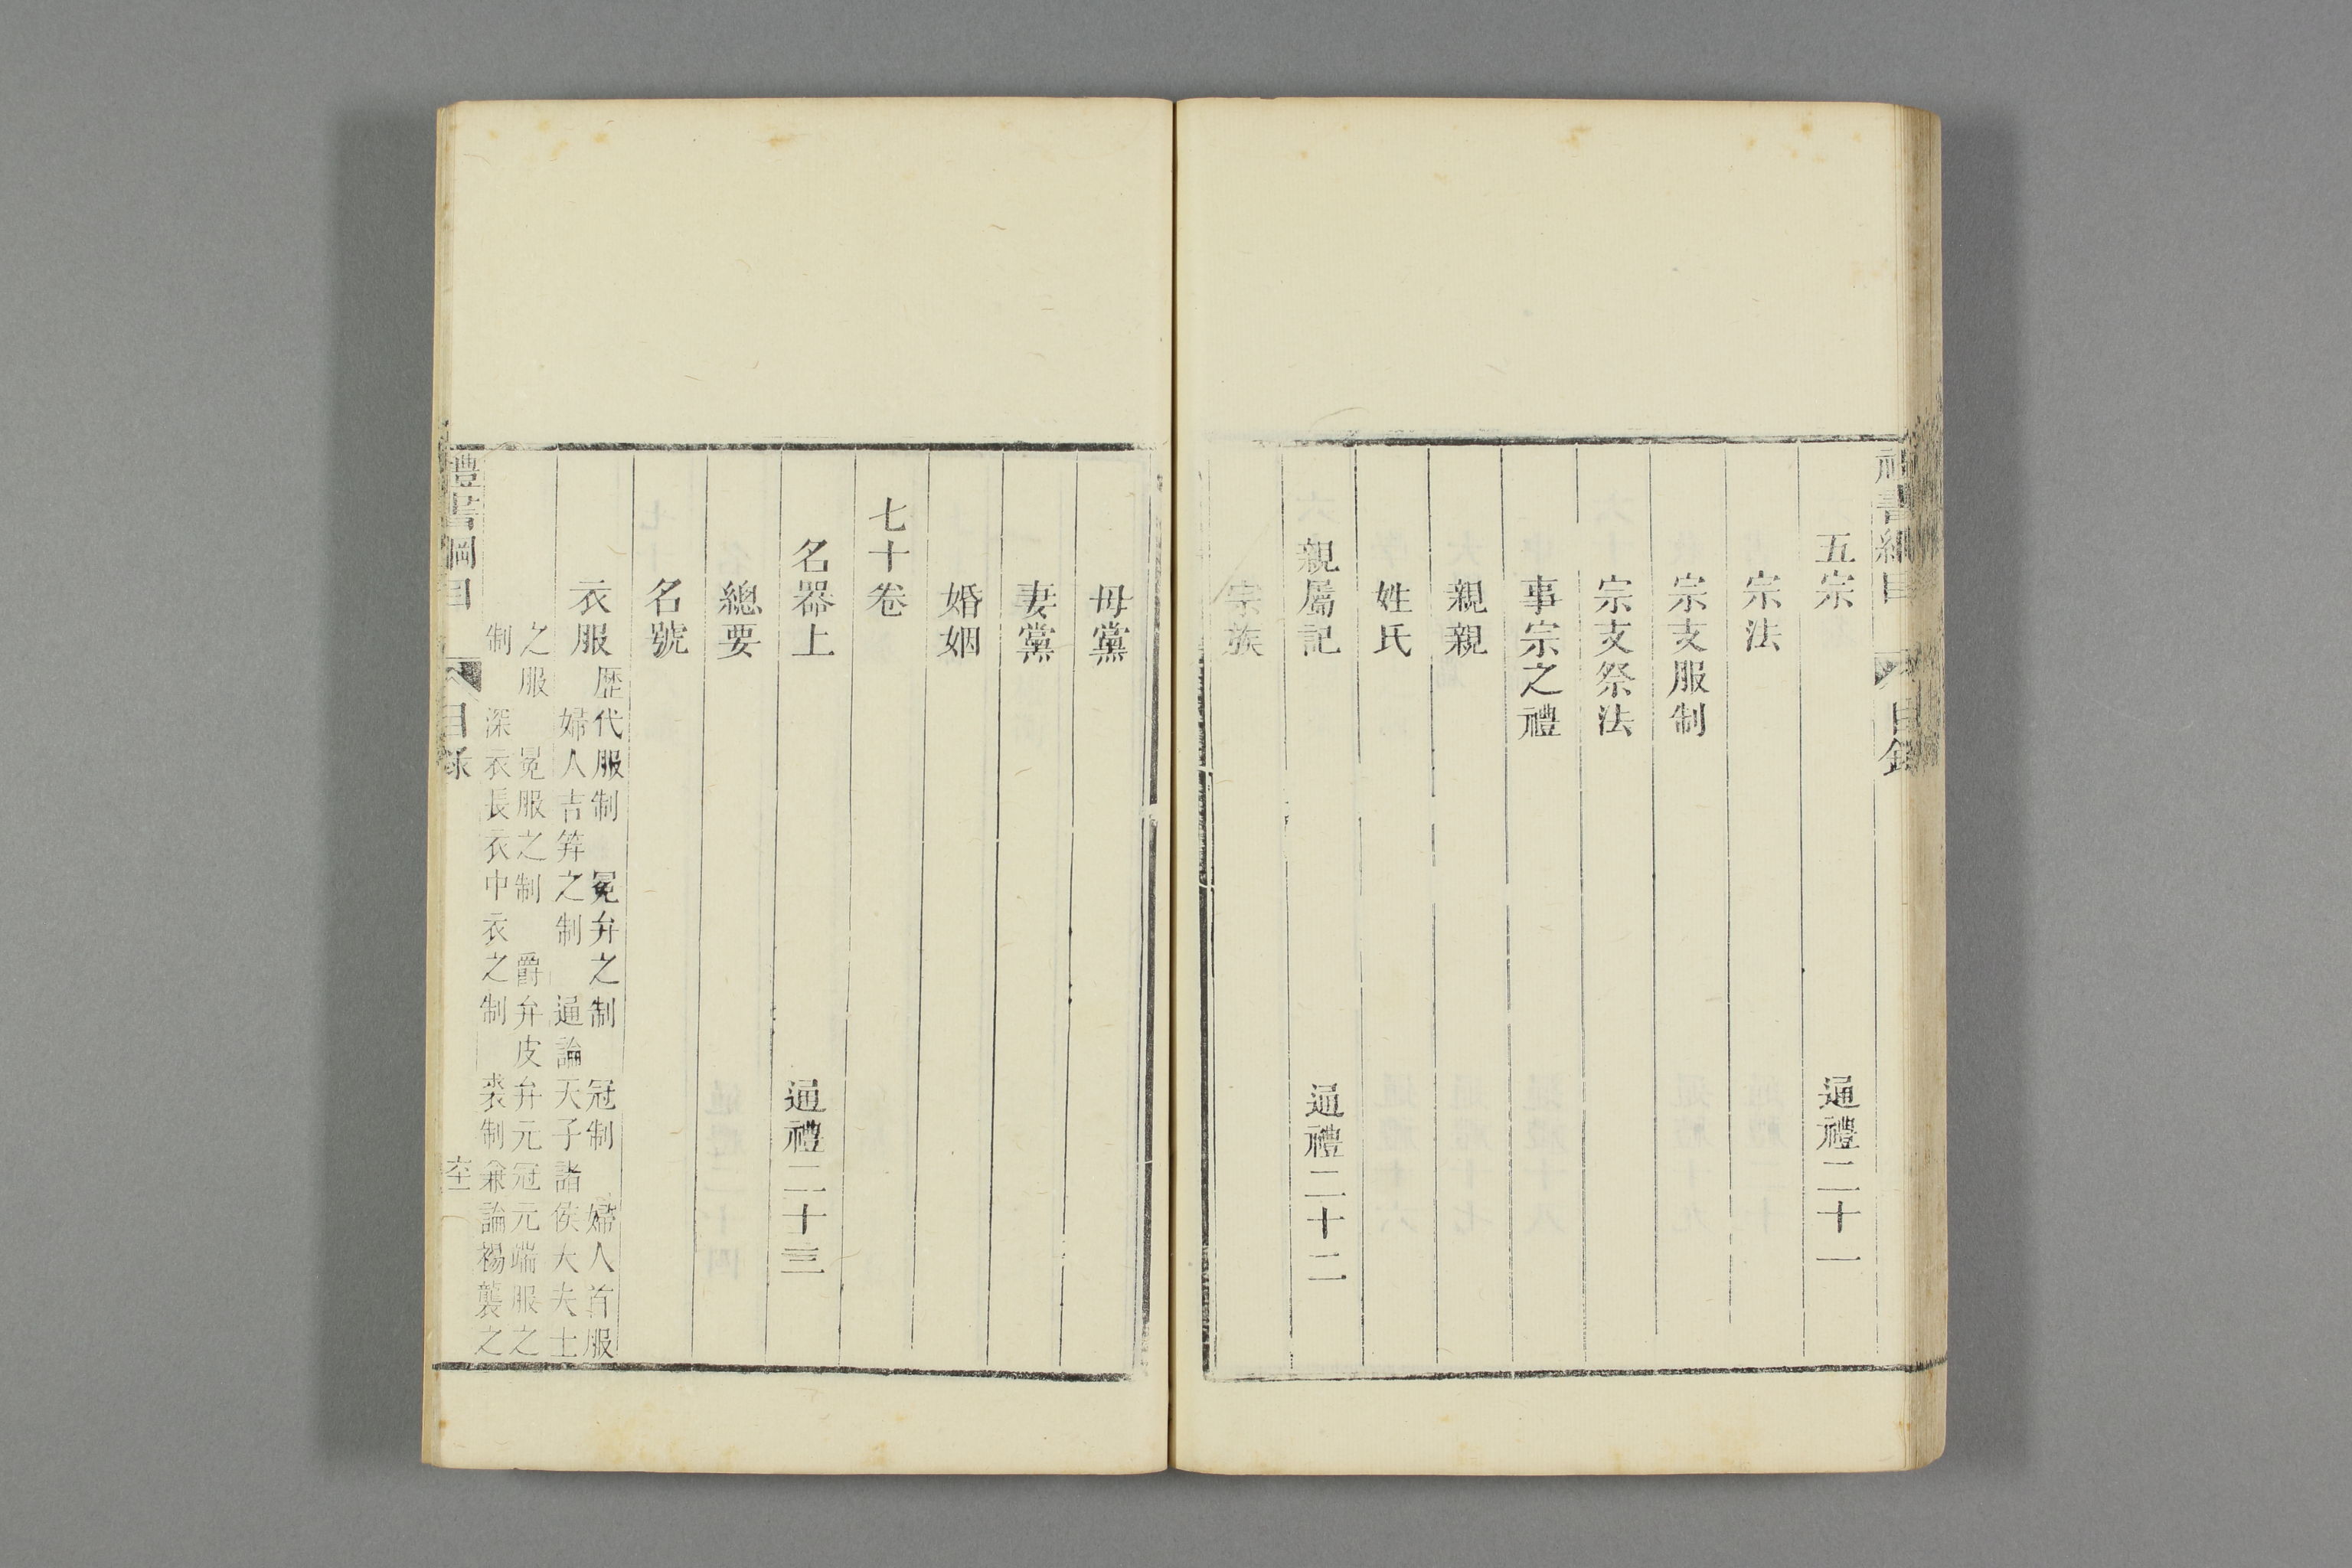 五宗　通禮二十一
宗法
宗支服制
宗支祭法
事宗之禮
親親
姓氏
親屬記　通禮二十二
宗族
母黨
妻黨
婚姻
七十卷
名器上　通禮二十三
總要
名號
衣服
歷代服制　冕弁之制　冠制　婦人首服
婦人吉笄之制　通論天子諸侯大夫士
之服　冕服之制　爵弁皮弁元冠元端服之
制　深衣長衣中衣之制　裘制兼論裼襲之
禮書綱目　目錄